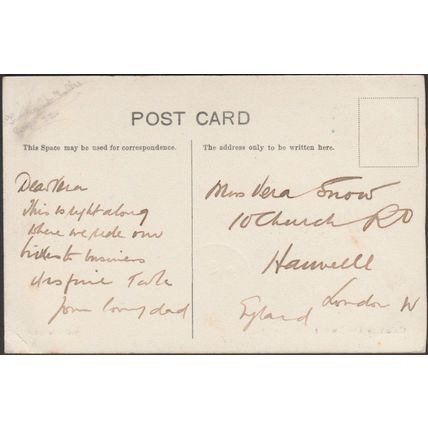 POST CARD
This Space may be used for correspondence.
The address only to be written here.
Dear Vera
This is right along
where we ride our
bikes to business
from loving dad
Miss Vera Snow
10 Church RD
Hanwell
London W
England